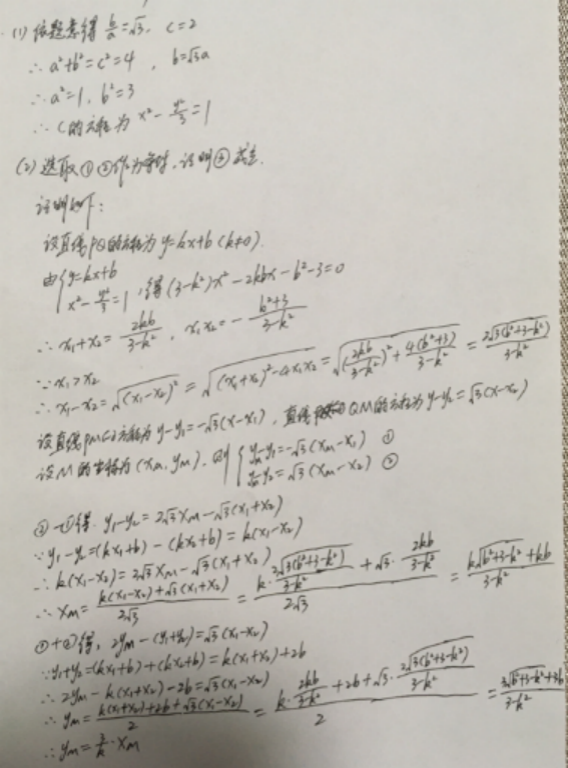 (1) 依题意得 b/a=√3, c=2
∴ a²+b²=c²=4, b=√3a
∴ a²=1, b²=3
∴ C的方程为 x²-y²/3=1
(2) 选取①②作为条件,证明③成立.
证明如下:
设直线PQ的方程为 y=kx+b (k≠0).
由{y=kx+b, x²-y²/3=1, 得 (3-k²)x²-2kbx-b²-3=0
∴ x₁+x₂=2kb/(3-k²), x₁x₂=-(b²+3)/(3-k²)
∵ x₁>x₂
∴ x₁-x₂=√(x₁-x₂)²=√((x₁+x₂)²-4x₁x₂)=√((2kb/(3-k²))²+4(b²+3)/(3-k²))=2√3(b²+3-k²)/(3-k²)
设直线PM的方程为 y-y₁=-√3(x-x₁), 直线QM的方程为 y-y₂=√3(x-x₂)
设M的坐标为(xM, yM), 则{yM-y₁=-√3(xM-x₁) ①
yM-y₂=√3(xM-x₂) ②
②-①得 y₁-y₂=2√3xM-√3(x₁+x₂)
∵ y₁-y₂=(kx₁+b)-(kx₂+b)=k(x₁-x₂)
∴ k(x₁-x₂)=2√3xM-√3(x₁+x₂)
∴ xM=(k(x₁-x₂)+√3(x₁+x₂))/2√3=(k·2√3(b²+3-k²)/(3-k²)+√3·2kb/(3-k²))/2√3=(k√(b²+3-k²)+kb)/(3-k²)
①+②得, 2yM-(y₁+y₂)=√3(x₁-x₂)
∵ y₁+y₂=(kx₁+b)+(kx₂+b)=k(x₁+x₂)+2b
∴ 2yM-k(x₁+x₂)-2b=√3(x₁-x₂)
∴ yM=(k(x₁+x₂)+2b+√3(x₁-x₂))/2=(k·2kb/(3-k²)+2b+√3·2√3(b²+3-k²)/(3-k²))/2=(3√(b²+3-k²)+3b)/(3-k²)
∴ yM=3/k·xM